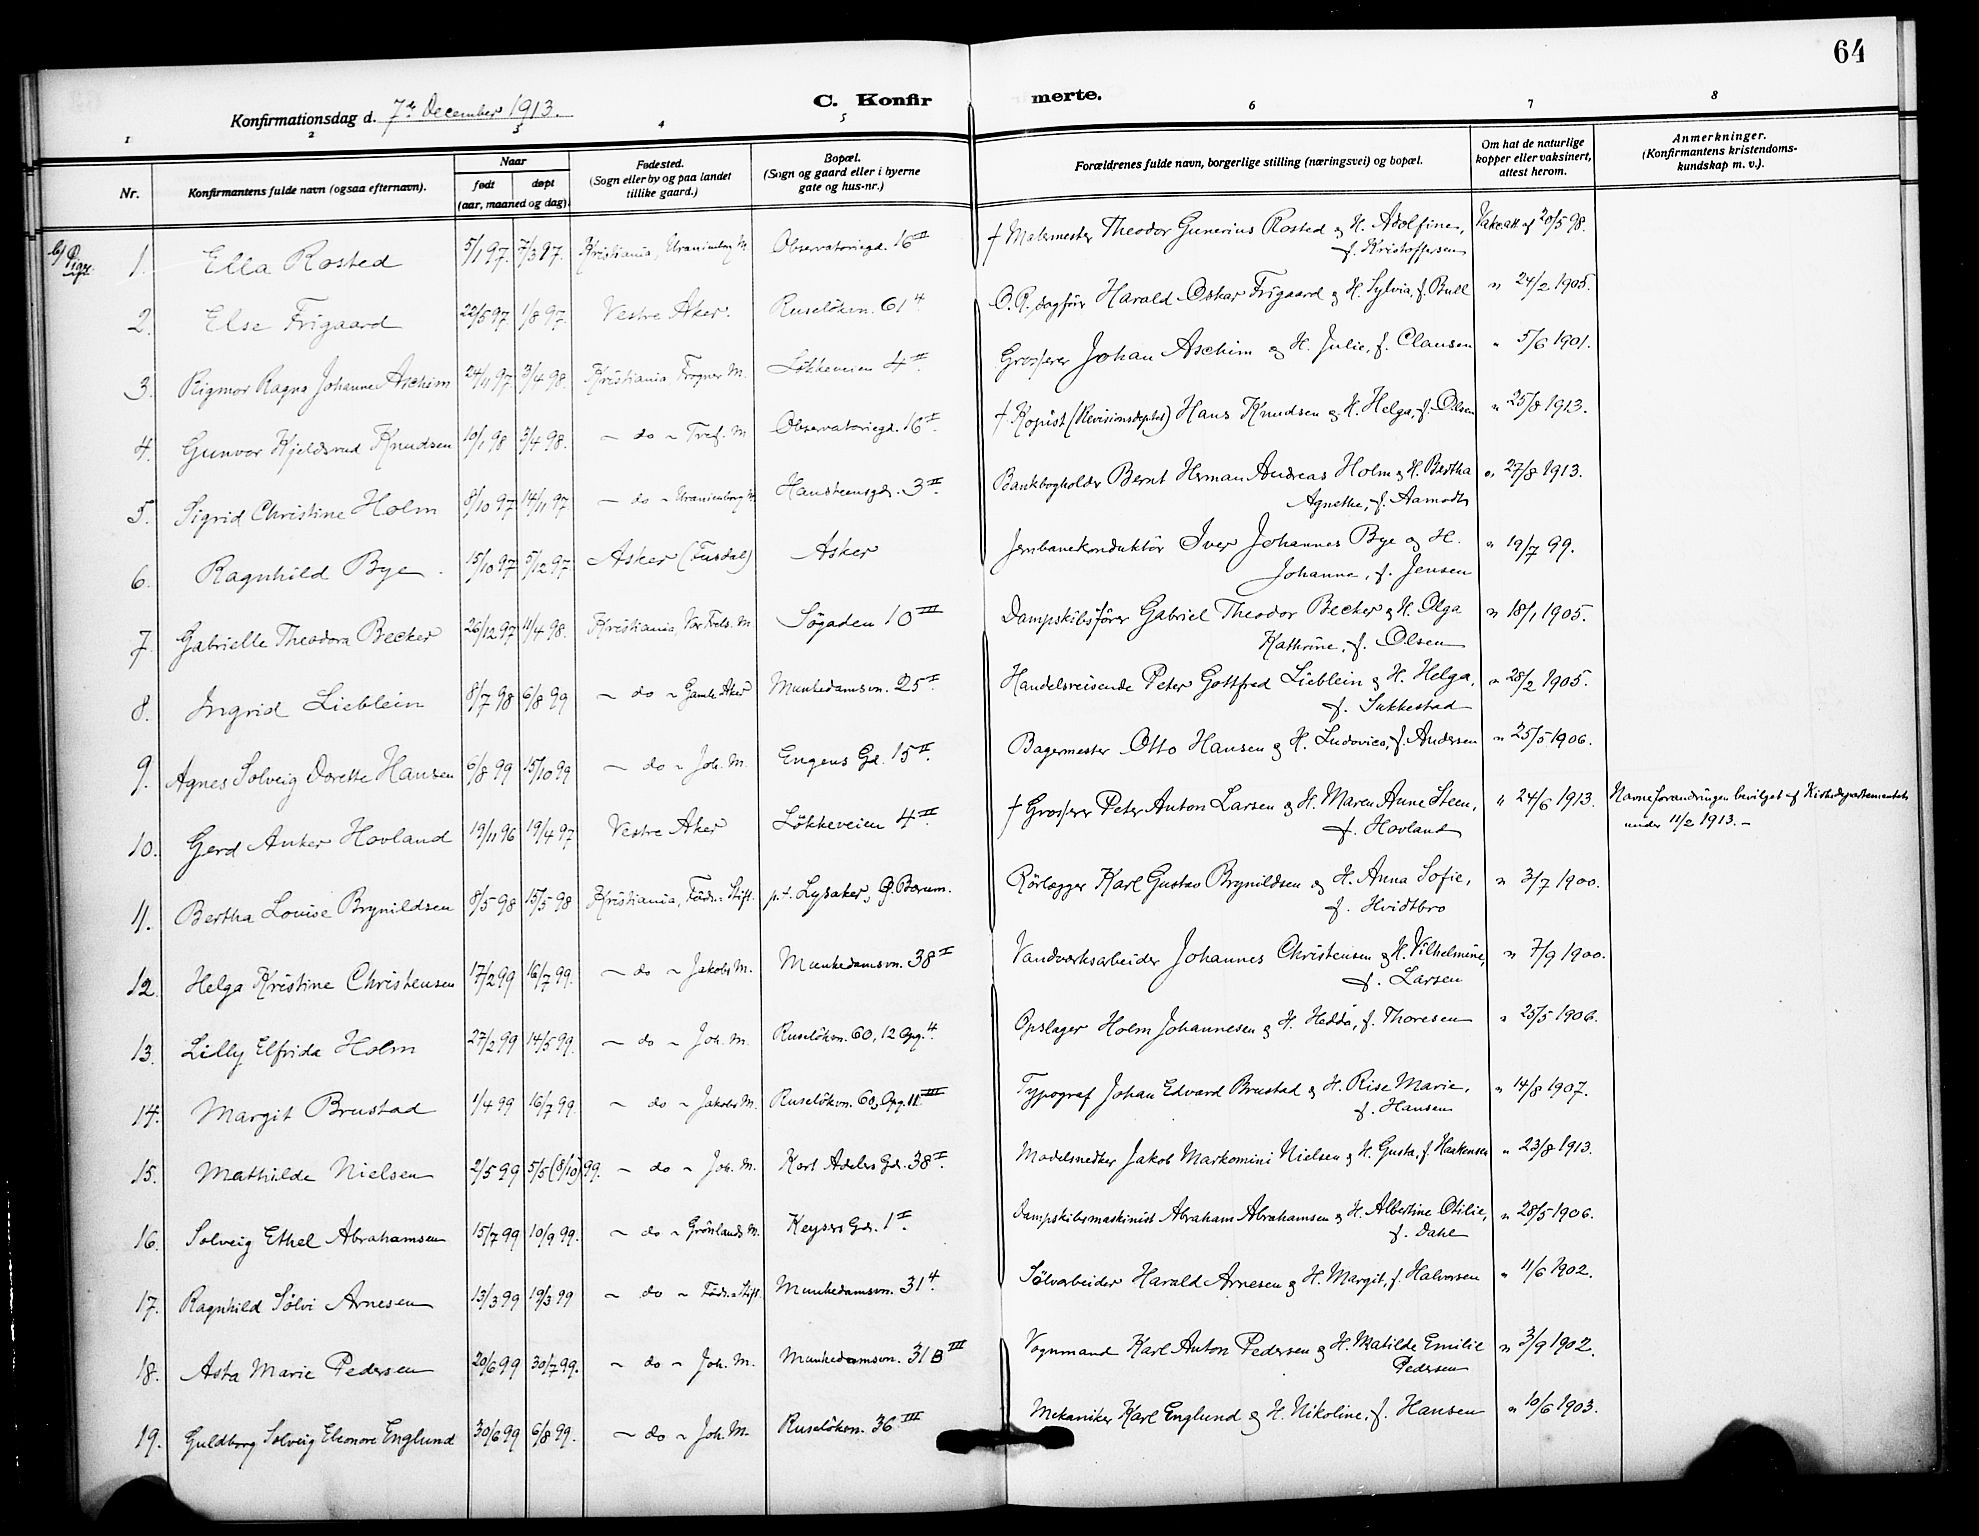 64
C. Konfirmerte.
Konfirmationsdag d. 7de December 1913.
1 2 3 4 5 6 7 8
Nr. Konfirmantens fulde navn (ogsaa efternavn). Naar født døpt (aar, maaned og dag). Fødested. (Sogn eller by og paa landet tillike gaard.) Bopæl. (Sogn og gaard eller i byerne gate og hus-nr.) Forældrenes fulde navn, borgerlige stilling (næringsvei) og bopæl. Om hat de naturlige kopper eller vaksinert, attest herom. Anmerkninger. (Konfirmantens kristendoms-kundskap m. v.).
b/ Piger
1. Ella Rosted 5/1 97. 7/3 97. Kristiania, Uranienborg M. Observatoriegd. 16 II † Malermester Theodor Gunerius Rosted & H. Adolfine, f. Kristoffersen Vakc.att. af 20/5 98.
2. Else Frigaard 22/5 97 1/8 97. Vestre Aker. Ruseløkvn. 61 4 O.R. sagfører Harald Oskar Frigaard & H. Sylvia, f. Bull " 24/2 1905.
3. Rigmor Ragna Johanne Aschim 24/11 97. 3/4 98. Kristiania, Frogner M. Løkkeveien 4 II. Grosserer Johan Aschim & H. Julie, f. Clausen " 5/6 1901.
4. Gunvor Kjeldsrud Knudsen 10/1 98 3/4 98. - do - Tref. M Observatoriegd. 16 I. † Kopist (Revisionsdeptet) Hans Knudsen & H. Helga, f. Olsen " 25/8 1913.
5. Sigrid Christine Holm 8/10 97 14/11 97 - do - Uranienborg M. Hansteensgd. 3 II. Bankbogholder Bernt Herman Andreas Holm & H. Bertha Agnethe, f. Aamodt " 27/8 1913.
6. Ragnhild Bye. 15/10 97 5/12 97 Asker (Fusdal) Asker Jernbanekonduktör Iver Johannes Bye og H. Johanne, f. Jensen " 19/7 99.
7. Gabrielle Theodora Becker 26/12 97 11/4 98. Kristiania, Vor Frels. M Søgaden 10 III Dampskibsfører Gabriel Theodor Becker & H. Olga Kathrine, f. Olsen " 18/1 1905.
8. Ingrid Lieblein 8/7 98 6/8 99 - do - Gamle Aker Munkedamsvn. 25 I. Handelsreisende Peter Gottfred Lieblein & H. Helga, f. Sukkestad " 28/2 1905.
9. Agnes Solveig Dorette Hansen 6/8 99 15/10 99 - do - Joh. M. Engens Gd. 15 II. Bagermester Otto Hansen & H. Ludovica, f. Andersen " 25/5 1906.
10. Gerd Anker Hovland 19/11 96 19/4 97 Vestre Aker Løkkeveien 4 III. † Grosserer Peter Anton Larsen & H. Maren Anne Steen, f. Hovland " 24/6 1913. Navneforandringen bevilget af Kirkedepartementet under 11/2 1913.-
11. Bertha Louise Brynildsen 8/5 98 15/5 98 Kristiania, Føds.-Stift. p.t. Lysaker, Ø. Bærum. Rörlægger Karl Gustav Brynildsen & H. Anna Sofie, f. Hvidtbro " 3/7 1900.
12. Helga Kristine Christensen 17/2 99 16/7 99. - do - Jakobs M. Munkedamsvn. 38 I Vandværksarbeider Johannes Christensen & H. Vilhelmine, f. Larsen " 7/9 1900.
13. Lilly Elfrida Holm 27/2 99 14/5 99. - do - Joh. M. Ruseløkvn. 60, 12 Opg. 4. Opslager Holm Johannesen & H. Hedda, f. Thoresen " 25/5 1906.
14. Margit Brustad 1/4 99 16/7 99. - do - Jakobs M. Ruseløkvn. 60, Opg. 11 III Typograf Johan Edvard Brustad & H. Rise Marie, f. Hansen " 14/8 1907.
15. Mathilde Nielsen 2/5 99 5/5 (8/10) 99. - do - Joh. M. Karl Adelers Gd. 38 I. Modelsnedker Jakob Markomini Nielsen & H. Gusta, f. Haakensen " 23/8 1913.
16. Solveig Ethel Abrahamsen 15/7 99 10/9 99. - do - Grönlands M. Keysers Gd. 1 I. Dampskibsmaskinist Abraham Abrahamsen & H. Albertine Otilie, f. Dahl " 28/5 1906.
17. Ragnhild Sølvi Arnesen 13/3 99 19/3 99 - do - Føds.-Stift. Munkedamsvn. 31 4. Sølvarbeider Harald Arnesen & H. Margit, f. Halvorsen " 11/6 1902.
18. Asta Marie Pedersen 20/6 99 30/7 99. - do - Joh. M. Munkedamsvn. 31 B III Vognmand Karl Anton Pedersen & H. Matilde Emilie Pedersen " 3/9 1902.
19. Guldborg Solveig Eleonore Englund 30/6 99 6/8 99. - do - Joh. M. Ruseløkvn. 36 III Mekaniker Karl Englund & H. Nikoline, f. Hansen " 10/6 1903.